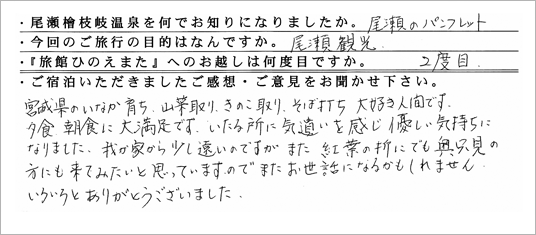 ・尾瀬檜枝岐温泉を何でお知りになりましたか。 尾瀬のパンフレット
・今回のご旅行の目的はなんですか。 尾瀬観光
・『旅館ひのえまた』へのお越しは何度目ですか。 2度目.
・ご宿泊いただきましたご感想・ご意見をお聞かせ下さい。
宮城県のいなか育ち. 山菜取り. きのこ取り. そば打ち 大好き人間です.
夕食 朝食に大満足です. いたる所に気遣いを感じ優しい気持ちに
なりました. 我が家から少し遠いのですが また 紅葉の折にでも奥只見の
方にも来てみたいと思っていますのでまたお世話になるかもしれません.
いろいろとありがとうございました.